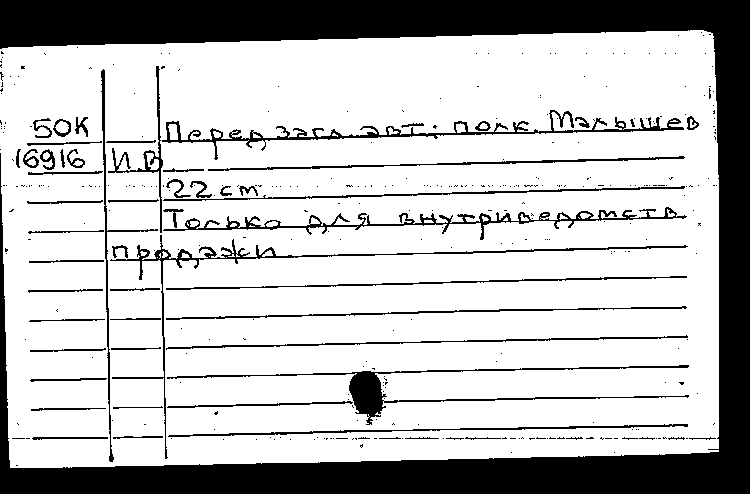 50К Перед загл. авт.: полк. Малышев
16916 И.В.
22 cm.
Только для внутриведомств.
продажи.